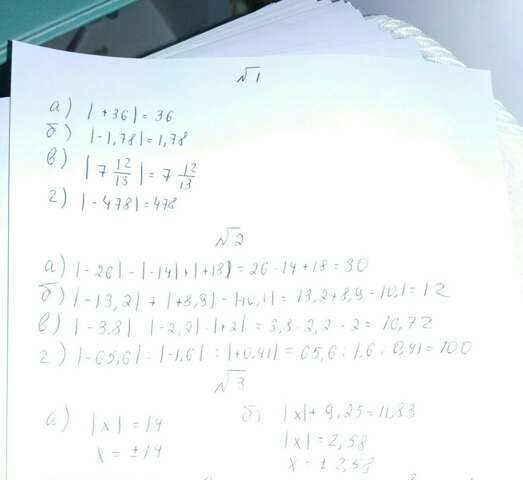 √1
а) |+36| = 36
б) |-1,78| = 1,78
в) |7 12/13| = 7 12/13
г) |-478| = 478
√2
а) |-26| - |-14| + |+18| = 26 - 14 + 18 = 30
б) |-13,2| + |+8,9| - |-10,1| = 13,2 + 8,9 - 10,1 = 12
в) |-3,8| · |-2,2| · |+2| = 3,8 · 2,2 · 2 = 16,72
г) |-65,6| : |-1,6| : |+0,41| = 65,6 : 1,6 : 0,41 = 100
√3
а) |x| = 14 б) |x| + 9,25 = 11,83
x = ±14 |x| = 2,58
x = ± 2,58